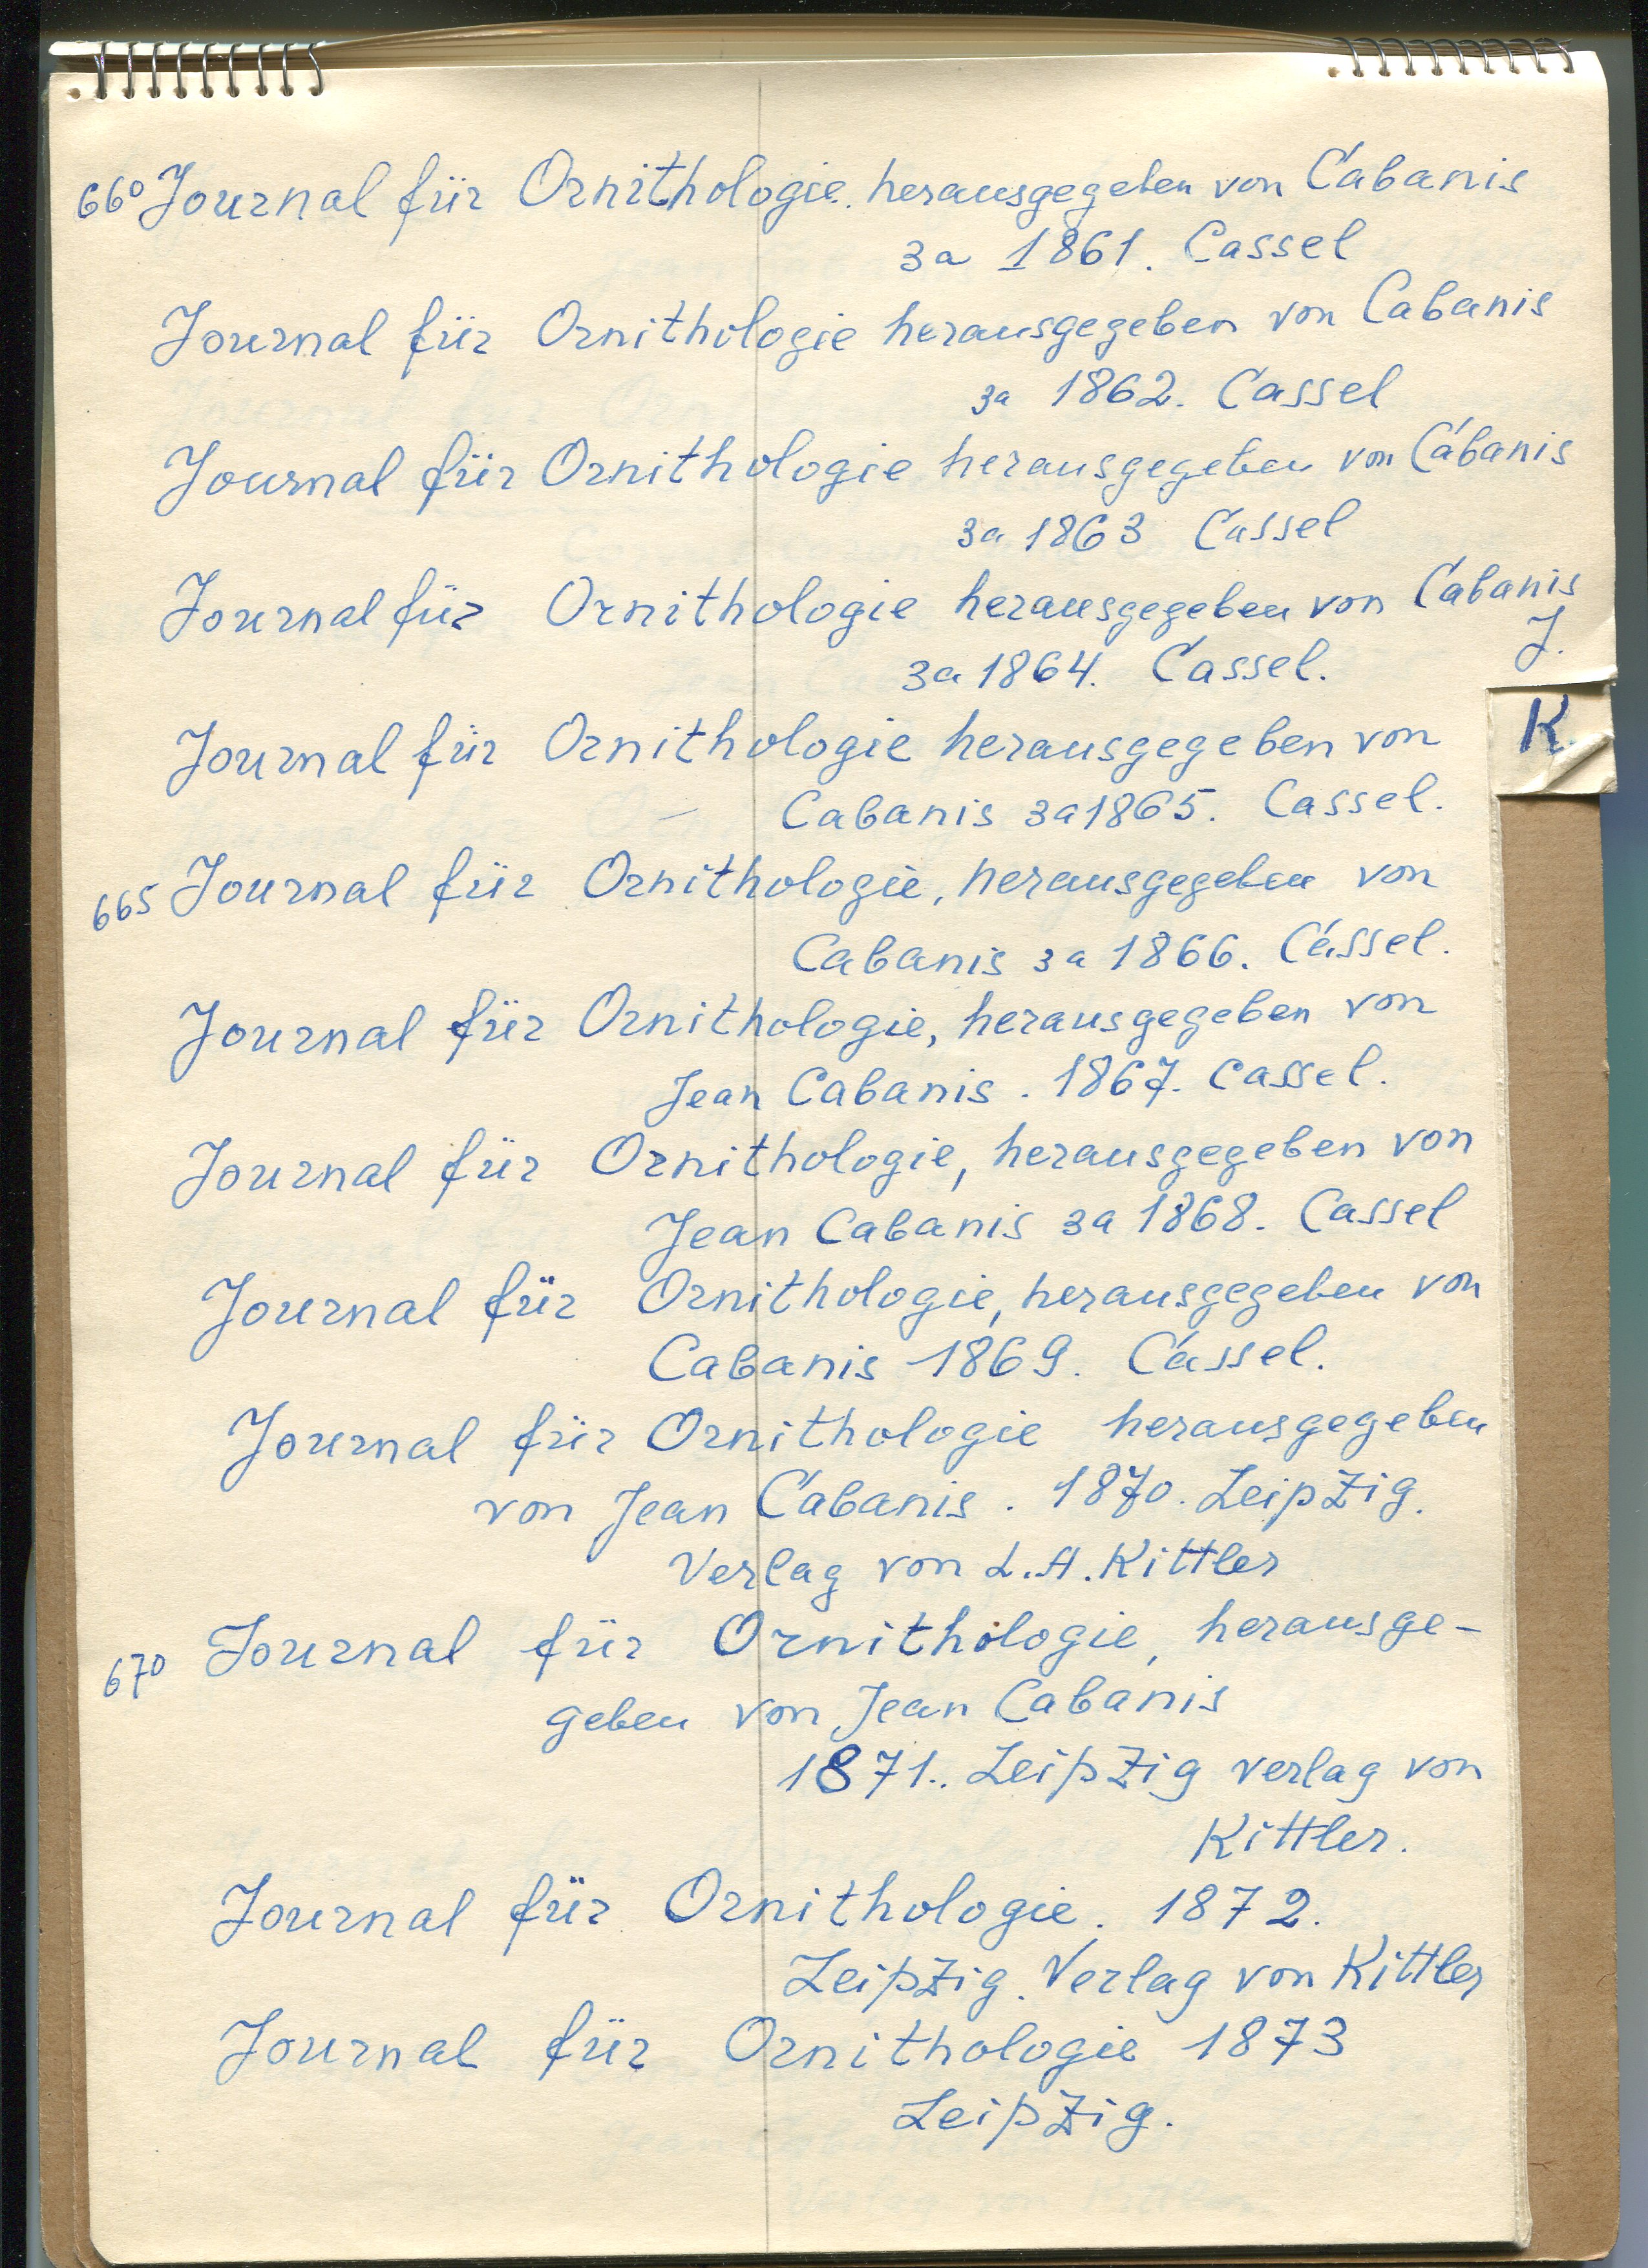 660 Journal für Ornithologie. herausgegeben von Cabanis
за 1861. Cassel
Journal für Ornithologie herausgegeben von Cabanis
за 1862. Cassel
Journal für Ornithologie herausgegeben von Cabanis
за 1863 Cassel
Journal für Ornithologie herausgegeben von Cabanis
J.
за 1864. Cassel.
K.
Journal für Ornithologie herausgegeben von
Cabanis за 1865. Cassel.
665 Journal für Ornithologie, herausgegeben von
Cabanis за 1866. Cassel.
Journal für Ornithologie, herausgegeben von
Jean Cabanis. 1867. Cassel.
Journal für Ornithologie, herausgegeben von
Jean Cabanis за 1868. Cassel
Journal für Ornithologie, herausgegeben von
Cabanis 1869. Cassel.
Journal für Ornithologie herausgegeben
von Jean Cabanis. 1870. Leipzig.
Verlag von L.A. Kittler
670 Journal für Ornithologie, herausge-
geben von Jean Cabanis
1871.. Leipzig verlag von
Kittler.
Journal für Ornithologie. 1872.
Leipzig. Verlag von Kittler
Journal für Ornithologie 1873
Leipzig.